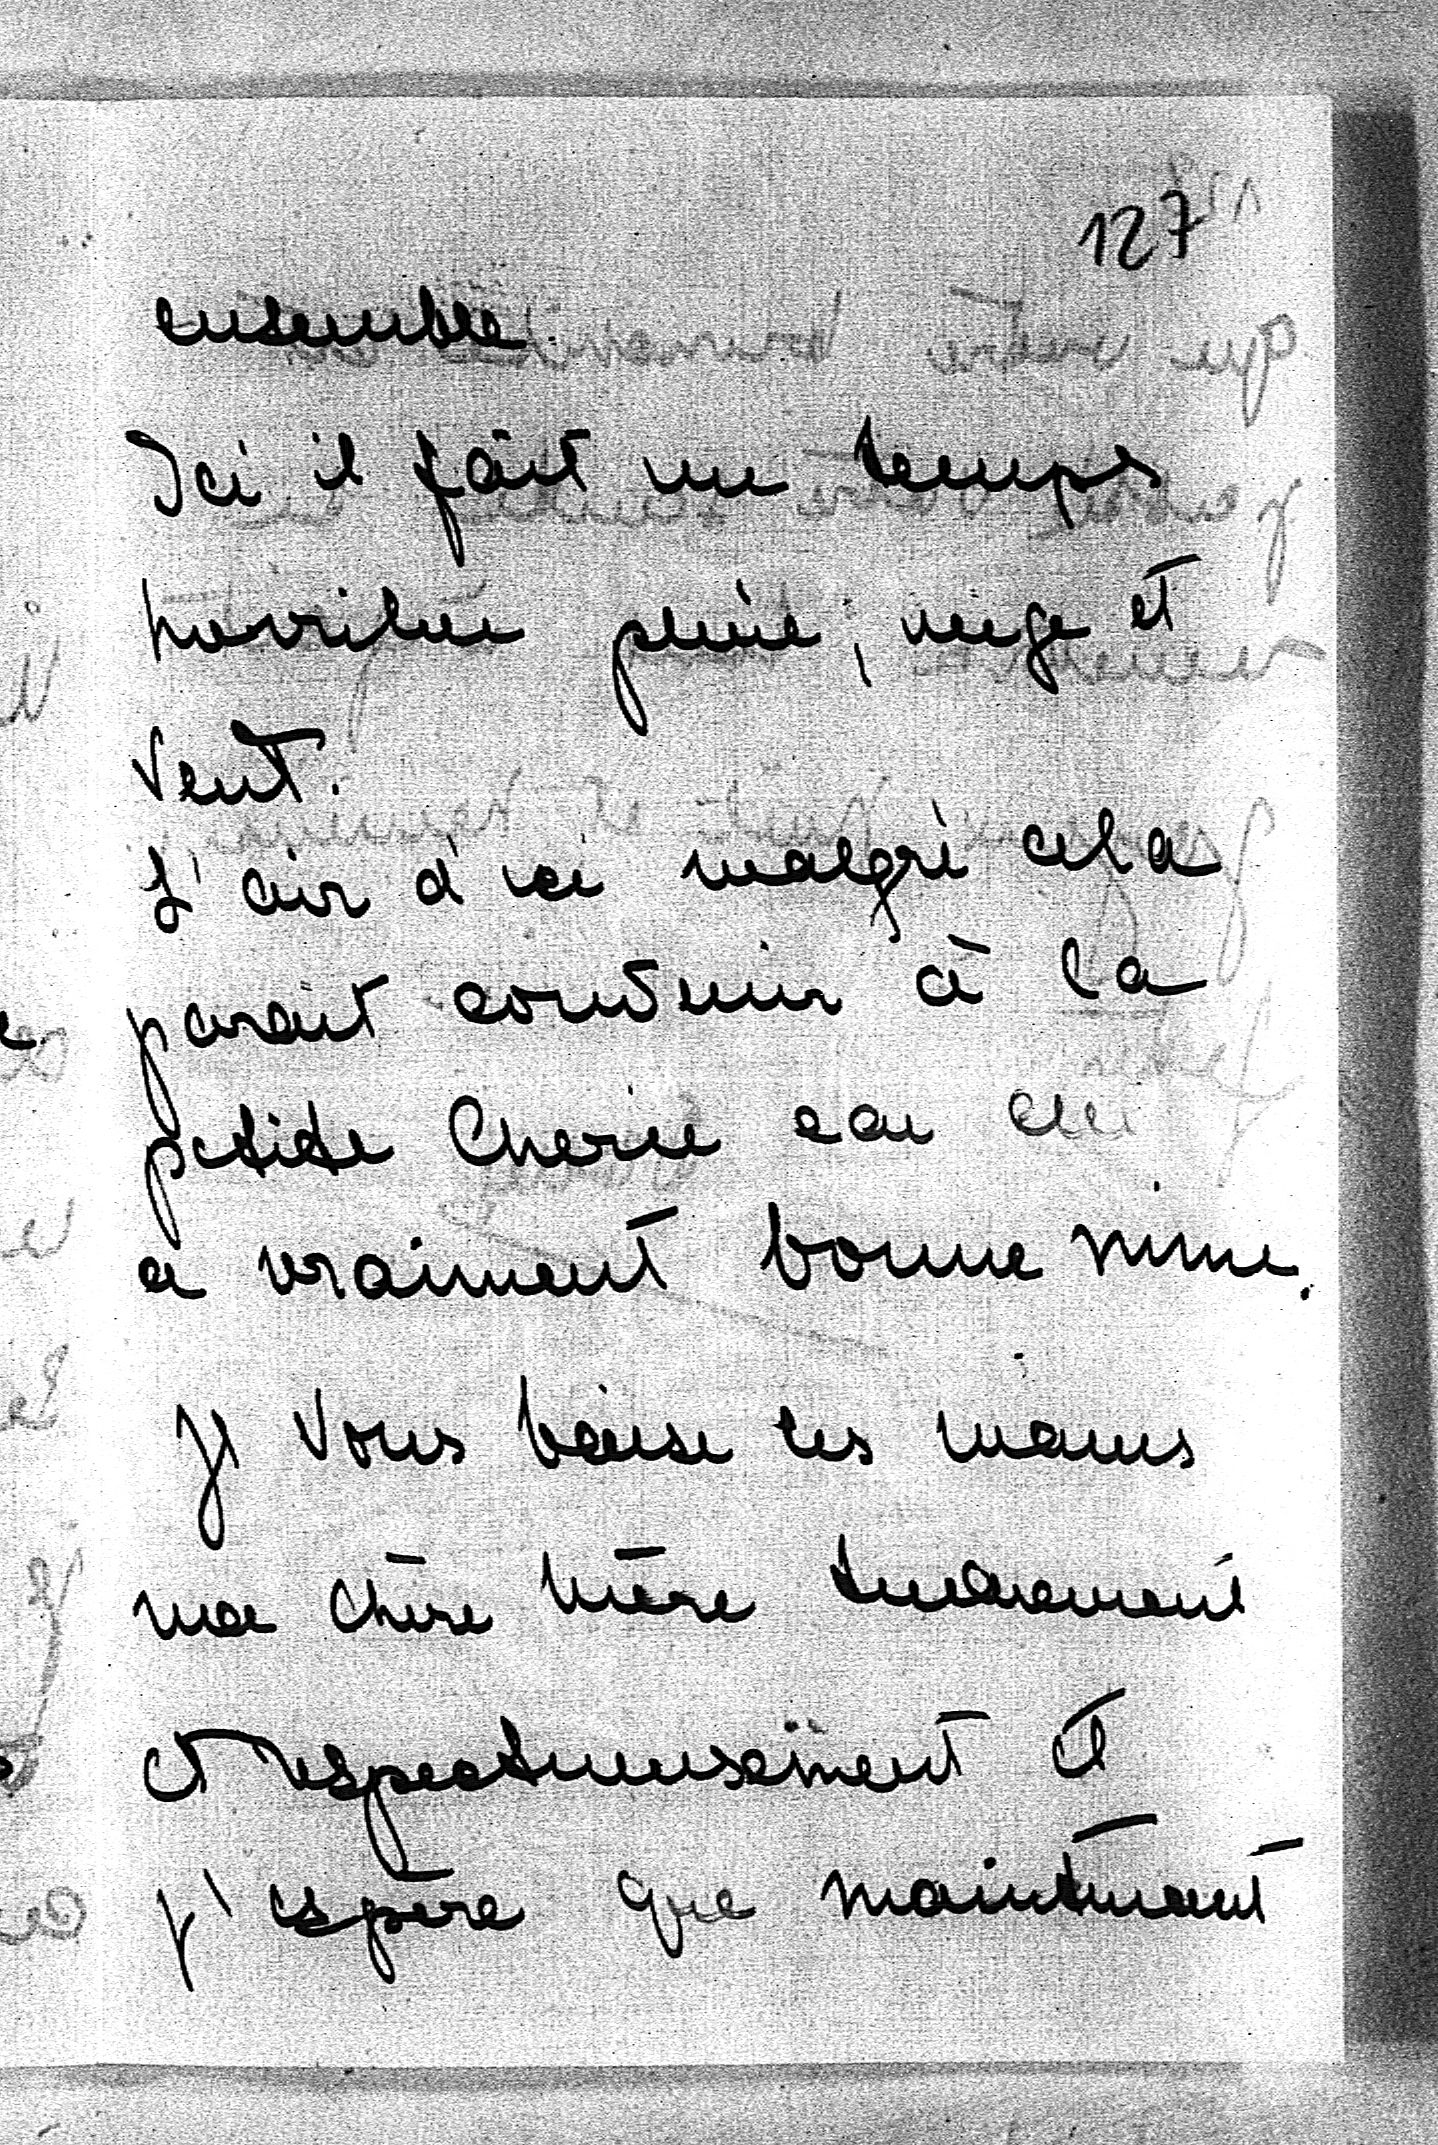 127
ensemble.
Ici il fait un temps
horrible pluie, neige et
vent.
L'air d'ici malgré cela
parait convenir à la
petite Cherie car elle
a vraiment bonne mine.
Je vous baise les mains
ma chère Mère tendrement
et respectueusement et
j'espère que maintenant